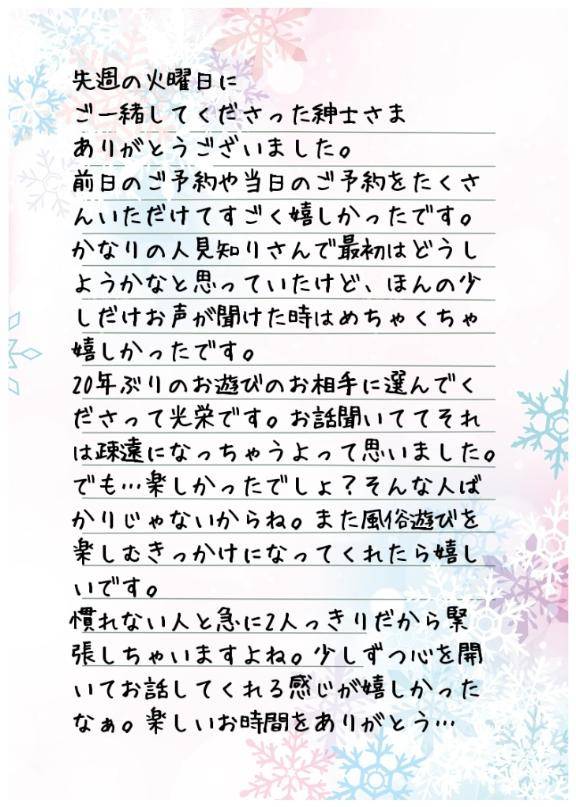 先週の火曜日に
ご一緒してくださった紳士さま
ありがとうございました。
前日のご予約や当日のご予約をたくさ
んいただけてすごく嬉しかったです。
かなりの人見知りさんで最初はどうし
ようかなと思っていたけど、ほんの少
しだけお声が聞けた時はめちゃくちゃ
嬉しかったです。
20年ぶりのお遊びのお相手に選んでく
ださって光栄です。お話聞いててそれ
は疎遠になっちゃうよって思いました。
でも…楽しかったでしょ？そんな人ば
かりじゃないからね。また風俗遊びを
楽しむきっかけになってくれたら嬉し
いです。
慣れない人と急に2人っきりだから緊
張しちゃいますよね。少しずつ心を開
いてお話してくれる感じが嬉しかった
なぁ。楽しいお時間をありがとう…